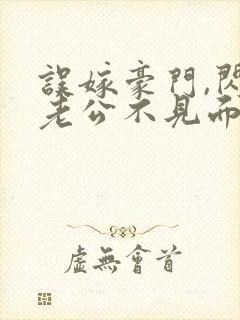 誤嫁豪門,閃
老公不見而
虛無會首